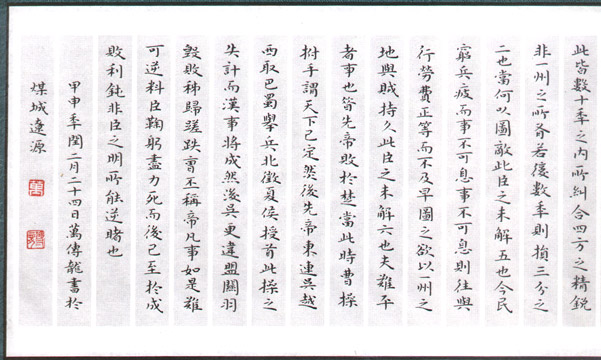 此皆數十秊之内所糾合四方之精銳
非一州之所有若復數秊則損三分之
二也當何以圖敵此臣之未解五也今民
窮兵疲而事不可息事不可息則往與
行勞費正等而不及早圖之欲以一州之
地與賊持久此臣之未解六也夫難平
者事也昔先帝敗於楚當此時曹操
拊手謂天下已定然後先帝東連吳越
西取巴蜀舉兵北徵夏侯授首此操之
失計而漢事將成然後吳更違盟關羽
毀敗秭歸蹉跌曹丕稱帝凡事如是難
可逆料臣鞠躬盡力死而後已至於成
敗利鈍非臣之明所能逆睹也
甲申秊閏二月二十四日萬傳龍書於
煤城遼源